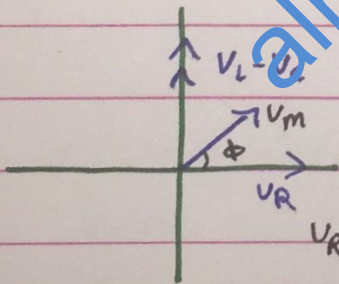 V_L - V_C
V_m
ϕ
V_R
V_R